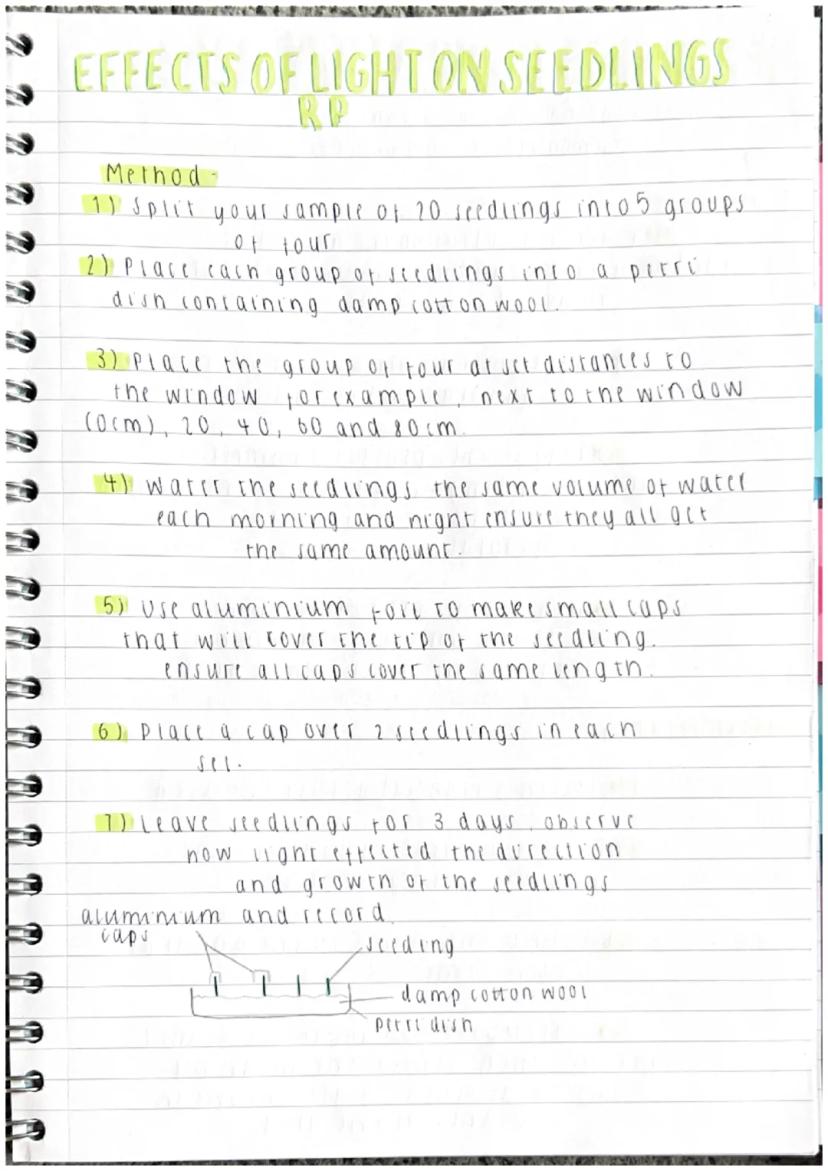 EFFECTS OF LIGHT ON SEEDLINGS
RP
Method-
1) Split your sample of 20 seedlings into 5 groups
of four
2) Place each group of seedlings into a petri
dish containing damp cotton wool.
3) Place the group of four at set distances to
the window for example, next to the window
(0cm), 20, 40, 60 and 80cm.
4) Water the seedlings the same volume of water
each morning and night ensure they all get
the same amount.
5) Use aluminium foil to make small caps
that will cover the tip of the seedling.
ensure all caps cover the same length.
6) Place a cap over 2 seedlings in each
set.
7) Leave seedlings for 3 days, observe
how light effected the direction
and growth of the seedlings
and record.
aluminium
caps
seeding
damp cotton wool
petri dish